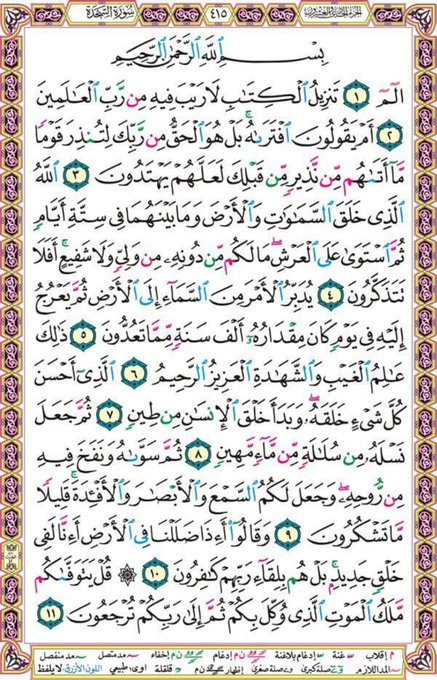 سُورَةُ السَّجْدَةِ ٤١٥ الجزء الحادي والعشرون
بِسْمِ ٱللَّهِ ٱلرَّحْمَٰنِ ٱلرَّحِيمِ
الٓمٓ ١ تَنزِيلُ ٱلْكِتَٰبِ لَا رَيْبَ فِيهِ مِن رَّبِّ ٱلْعَٰلَمِينَ
٢ أَمْ يَقُولُونَ ٱفْتَرَىٰهُ ۚ بَلْ هُوَ ٱلْحَقُّ مِن رَّبِّكَ لِتُنذِرَ قَوْمًا
مَّآ أَتَىٰهُم مِّن نَّذِيرٍ مِّن قَبْلِكَ لَعَلَّهُمْ يَهْتَدُونَ ٣ ٱللَّهُ
ٱلَّذِى خَلَقَ ٱلسَّمَٰوَٰتِ وَٱلْأَرْضَ وَمَا بَيْنَهُمَا فِى سِتَّةِ أَيَّامٍ
ثُمَّ ٱسْتَوَىٰ عَلَى ٱلْعَرْشِ ۖ مَا لَكُم مِّن دُونِهِۦ مِن وَلِىٍّ وَلَا شَفِيعٍ ۚ أَفَلَا
تَتَذَكَّرُونَ ٤ يُدَبِّرُ ٱلْأَمْرَ مِنَ ٱلسَّمَآءِ إِلَى ٱلْأَرْضِ ثُمَّ يَعْرُجُ
إِلَيْهِ فِى يَوْمٍ كَانَ مِقْدَارُهُۥٓ أَلْفَ سَنَةٍ مِّمَّا تَعُدُّونَ ٥ ذَٰلِكَ
عَٰلِمُ ٱلْغَيْبِ وَٱلشَّهَٰدَةِ ٱلْعَزِيزُ ٱلرَّحِيمُ ٦ ٱلَّذِىٓ أَحْسَنَ
كُلَّ شَىْءٍ خَلَقَهُۥ ۖ وَبَدَأَ خَلْقَ ٱلْإِنسَٰنِ مِن طِينٍ ٧ ثُمَّ جَعَلَ
نَسْلَهُۥ مِن سُلَٰلَةٍ مِّن مَّآءٍ مَّهِينٍ ٨ ثُمَّ سَوَّىٰهُ وَنَفَخَ فِيهِ
مِن رُّوحِهِۦ ۖ وَجَعَلَ لَكُمُ ٱلسَّمْعَ وَٱلْأَبْصَٰرَ وَٱلْأَفْـِٔدَةَ ۚ قَلِيلًا
مَّا تَشْكُرُونَ ٩ وَقَالُوٓا۟ أَءِذَا ضَلَلْنَا فِى ٱلْأَرْضِ أَءِنَّا لَفِى
خَلْقٍ جَدِيدٍۭ ۚ بَلْ هُم بِلِقَآءِ رَبِّهِمْ كَٰفِرُونَ ١٠ ۞ قُلْ يَتَوَفَّىٰكُم
مَّلَكُ ٱلْمَوْتِ ٱلَّذِى وُكِّلَ بِكُمْ ثُمَّ إِلَىٰ رَبِّكُمْ تُرْجَعُونَ ١١
م إقلاب غنة إدغام بلاغنة ن م إدغام ن م إخفاء مد متصل مد منفصل
المد اللازم صلة كبرى صلة صغرى إظهار ن م قلقلة طبيعي اللون الأزرق لا يلفظ